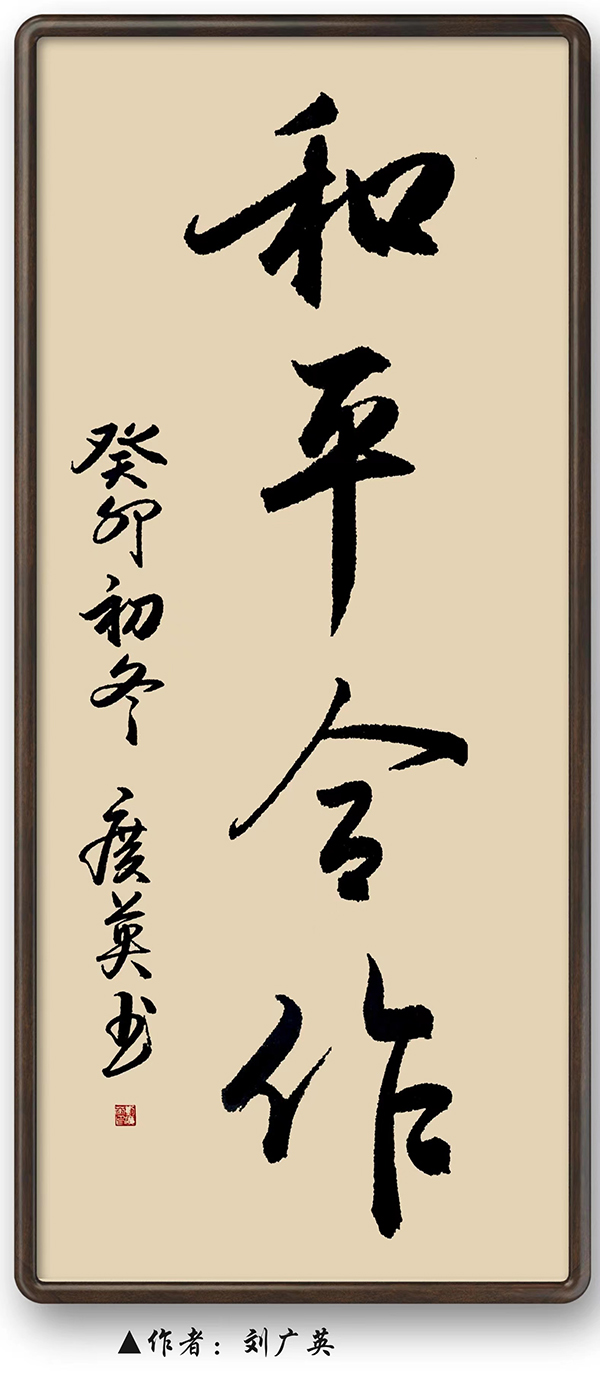 和平合作
癸卯初冬 廣英书
▲作者：刘广英